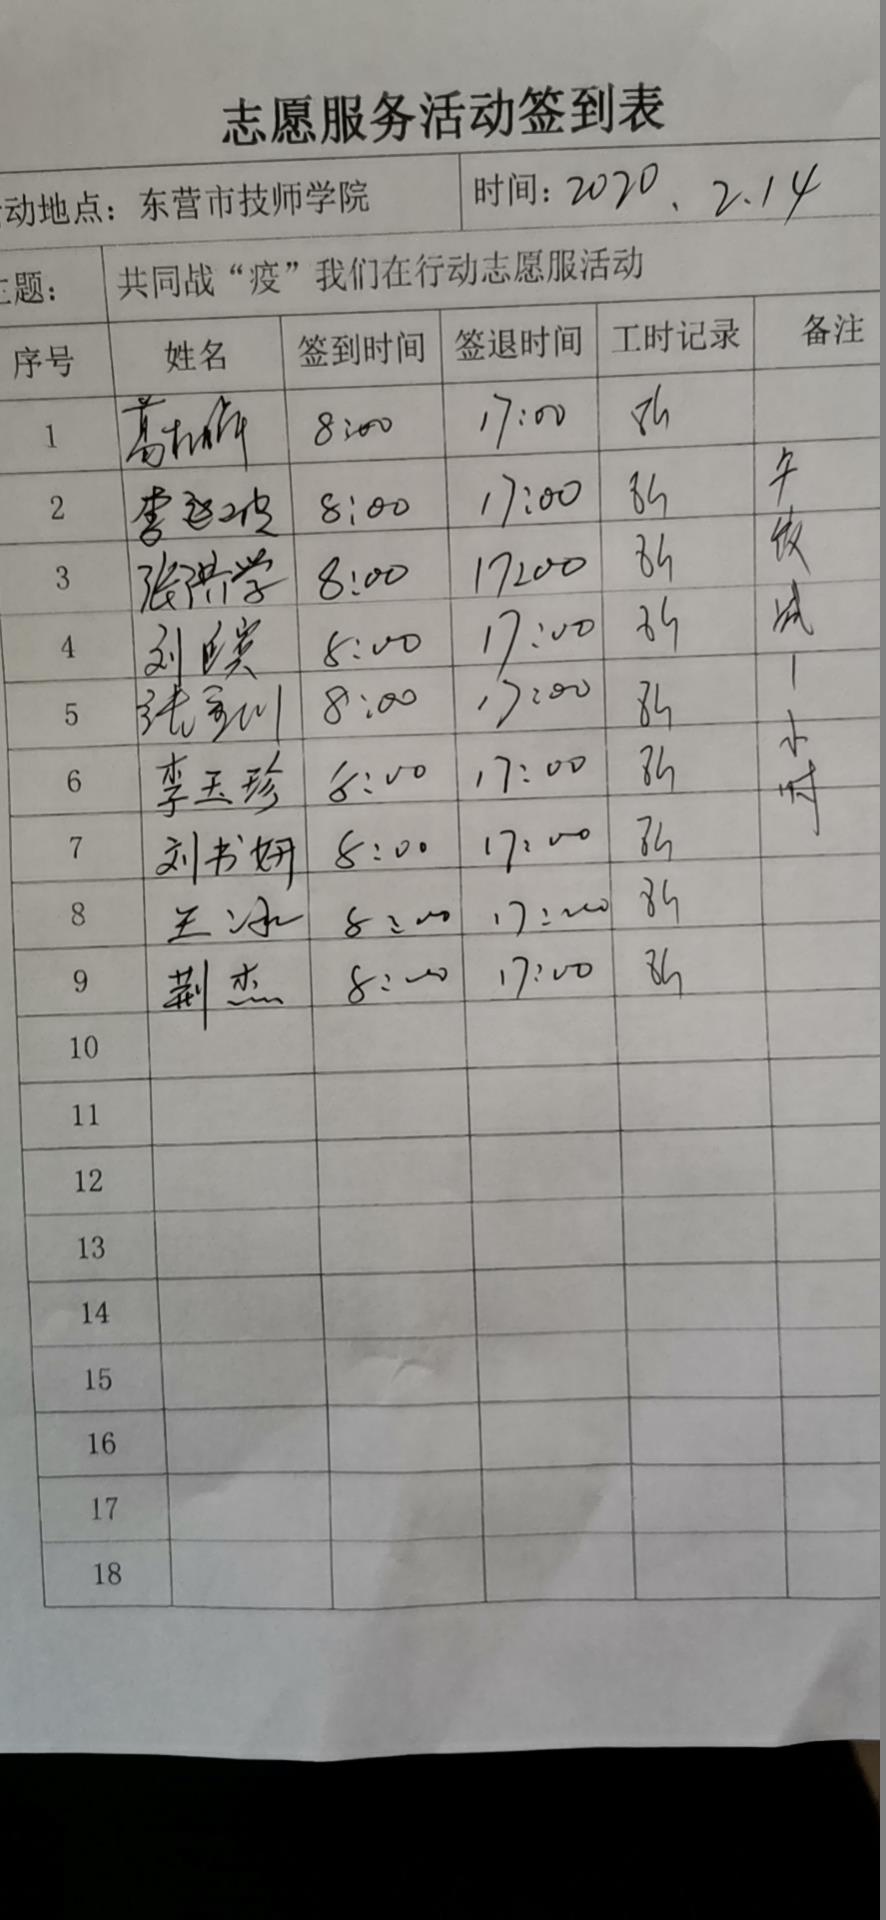 志愿服务活动签到表
动地点：东营市技师学院 时间：2020.2.14
主题： 共同战“疫”我们在行动志愿服活动
序号 姓名 签到时间 签退时间 工时记录 备注
1 8:00 17:00 8h
2 李 8:00 17:00 8h
3 张洪学 8:00 17:00 8h
4 刘 8:00 17:00 8h
5 张 8:00 17:00 8h
6 李玉珍 8:00 17:00 8h
7 刘书妍 8:00 17:00 8h
8 王冰 8:00 17:00 8h
9 荆杰 8:00 17:00 8h
午饭减1小时
10
11
12
13
14
15
16
17
18